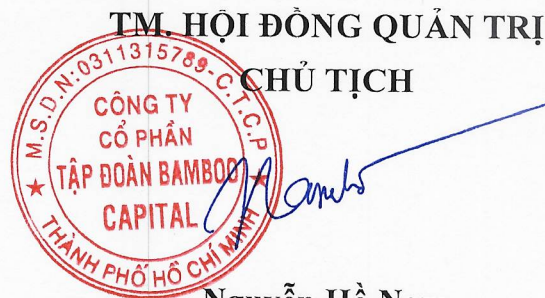 TM. HỘI ĐỒNG QUẢN TRỊ
CHỦ TỊCH
M.S.D.N:0311315789-C.T.C.P
CÔNG TY
CỔ PHẦN
TẬP ĐOÀN BAMBOO
CAPITAL
THÀNH PHỐ HỒ CHÍ MINH
Nguyễn Hồ